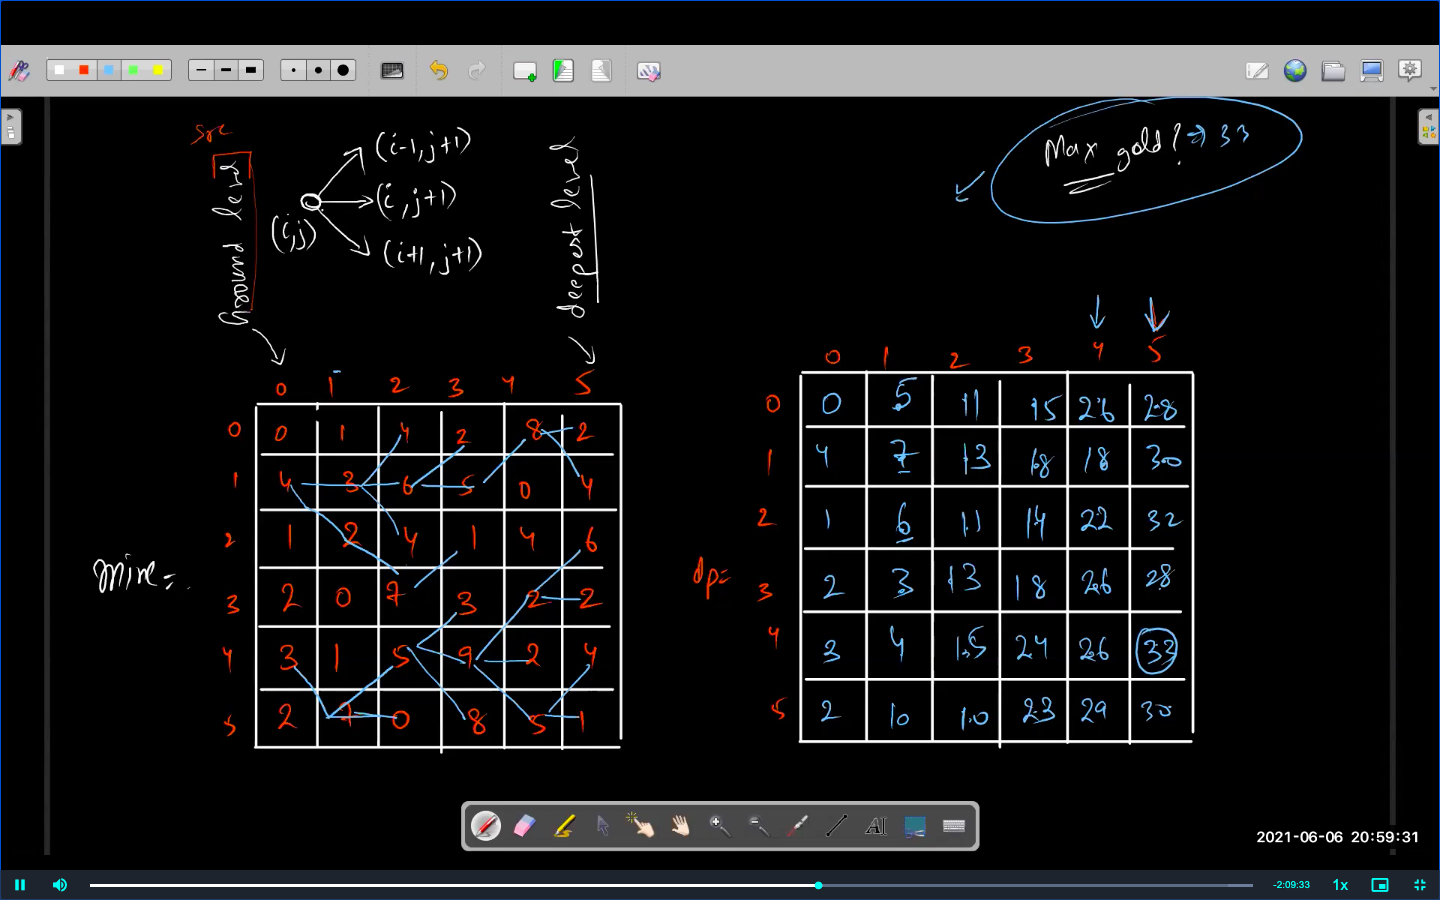 Src
Ground level
(i,j)
(i-1, j+1)
(i, j+1)
(i+1, j+1)
deepest level
Max gold? → 33
0 1 2 3 4 5
0 0 1 4 2 8 2
1 4 3 6 5 0 4
2 1 2 4 1 4 6
3 2 0 7 3 2 2
4 3 1 5 9 2 4
5 2 7 0 8 5 1
mine=
0 1 2 3 4 5
0 0 5 11 15 26 28
1 4 7 13 18 18 30
2 1 6 11 14 22 32
3 2 3 13 18 26 28
4 3 4 15 24 26 33
5 2 10 10 23 29 30
dp=
AI
2021-06-06 20:59:31
-2:09:33
1x